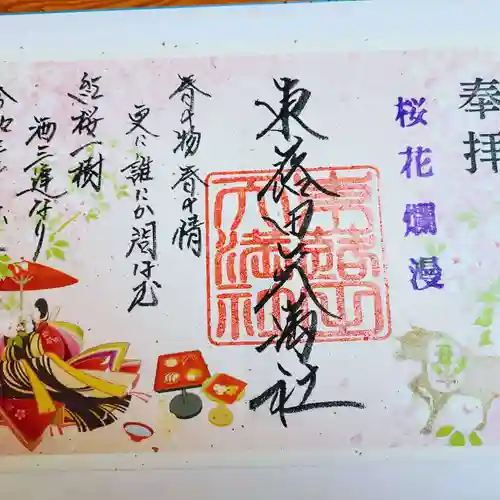 奉拝
桜花爛漫
東蕗田天満社
春の物春の情
更に誰にか問はむ
紅桜一樹
酒三遅なり
令和三年